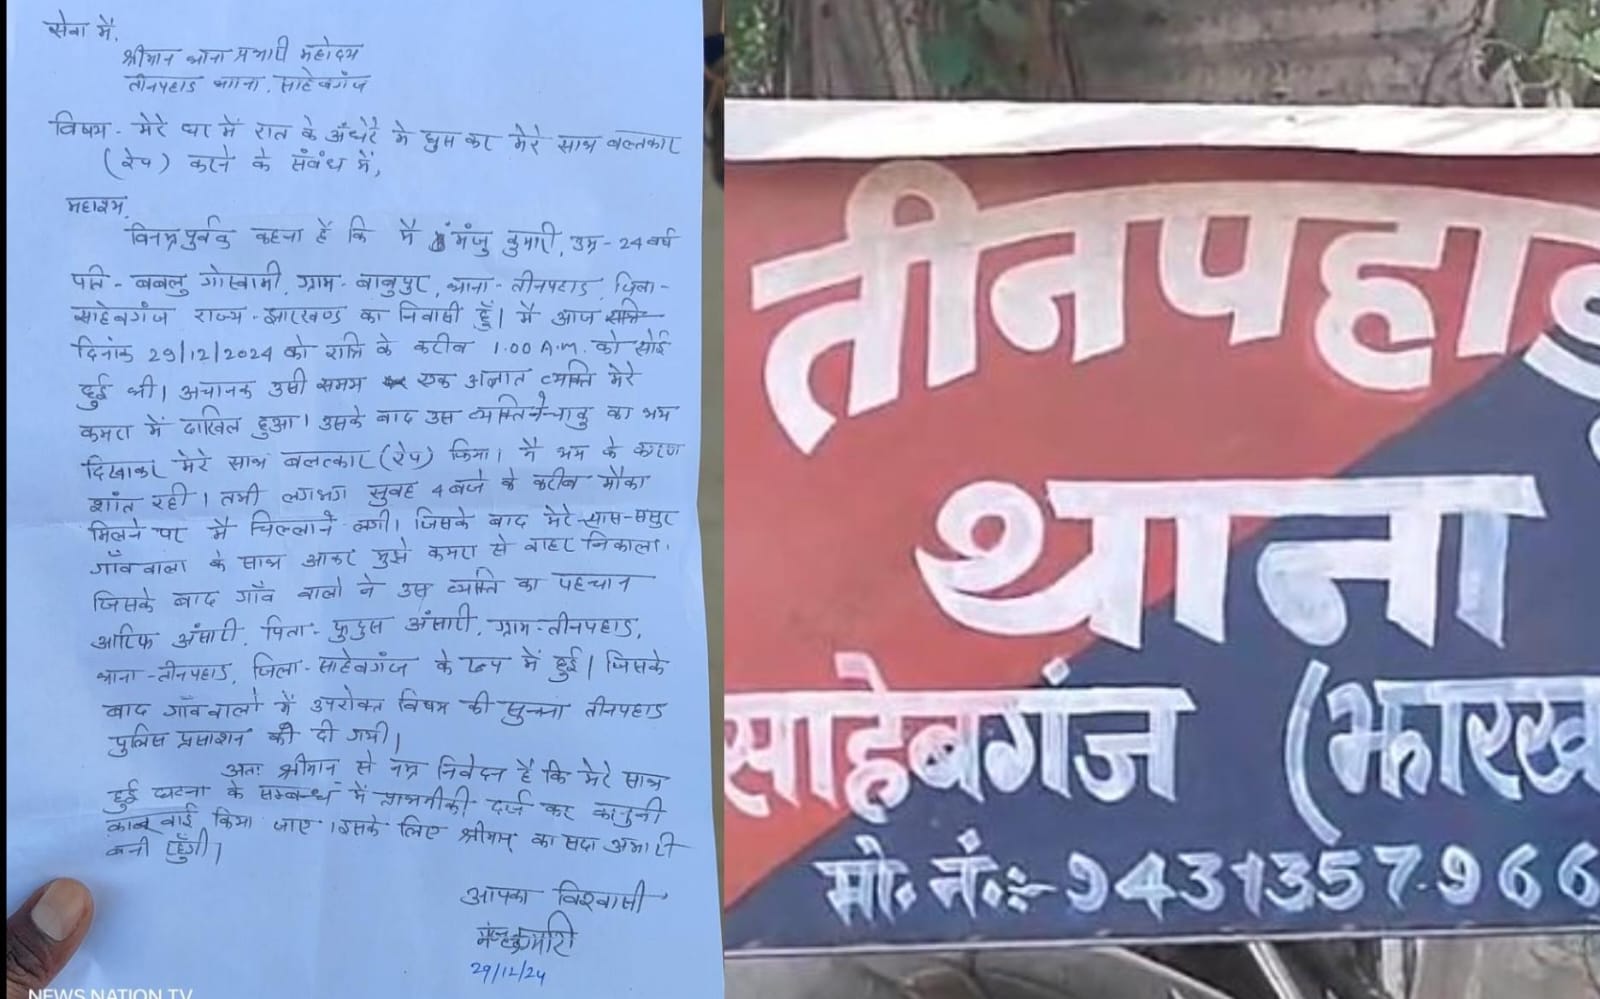 सेवा में,
श्रीमान थाना प्रभारी महोदय
तीनपहाड थाना, साहेबगंज
विषय - मेरे घर में रात के अँधेरे मे घुस कर मेरे साथ बलत्कार
(रेप) करने के संबंध में,
महाशय,
विनम्रपुर्वक कहना है कि मै मंजु कुमारी, उम्र - 24 वर्ष
पति - बबलु गोस्वामी, ग्राम - बाबुपुर, थाना - तीनपहाड, जिला -
साहेबगंज राज्य - झारखण्ड का निवासी हूँ। मै आज
दिनांक 29/12/2024 को रात्रि के करीब 1:00 A.m. को सोई
हुई थी। अचानक उसी समय एक अज्ञात व्यक्ति मेरे
कमरा में दाखिल हुआ। उसके बाद उस व्यक्ति ने चाकु का भय
दिखाकर मेरे साथ बलत्कार (रेप) किया। मै भय के कारण
शांत रही। तभी लगभग सुबह 4 बजे के करीब मौका
मिलने पर मै चिल्लाने लगी। जिसके बाद मेरे सास-ससुर
गाँव वाला के साथ आकर मुझे कमरा से बाहर निकाला।
जिसके बाद गाँव वालो ने उस व्यक्ति का पहचान
आरिफ अंसारी, पिता - कुदुस अंसारी, ग्राम - तीनपहाड,
थाना - तीनपहाड, जिला - साहेबगंज के रूप में हुई। जिसके
बाद गाँववालो में उपरोक्त विषय की सुचना तीनपहाड
पुलिस प्रसाशन को दी गयी।
अतः श्रीमान् से नम्र निवेदन है कि मेरे साथ
हुई घटना के सम्बन्ध में प्राथमीकी दर्ज कर कानुनी
कारवाई किया जाए। इसके लिए श्रीमान् का सदा अभारी
बनी रहुँगी।
आपका विश्वासी
मंजु कुमारी
29/12/24
NEWS NATION TV
तीनपहाड़
थाना
साहेबगंज (झारख
मो. नं.:- 9431357966